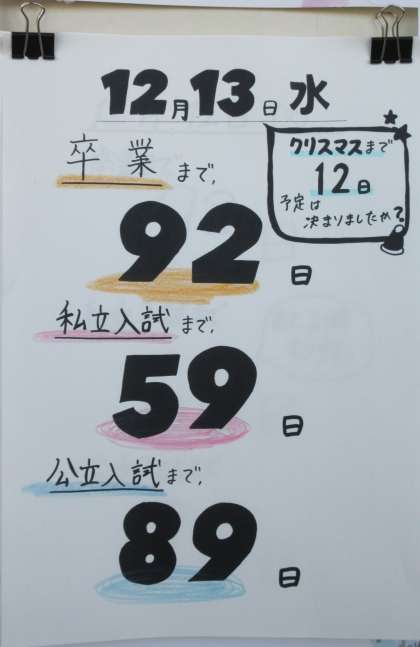 12月13日 水
クリスマスまで
12日
予定は
決まりましたか?
卒業まで,
92日
私立入試まで,
59日
公立入試まで,
89日